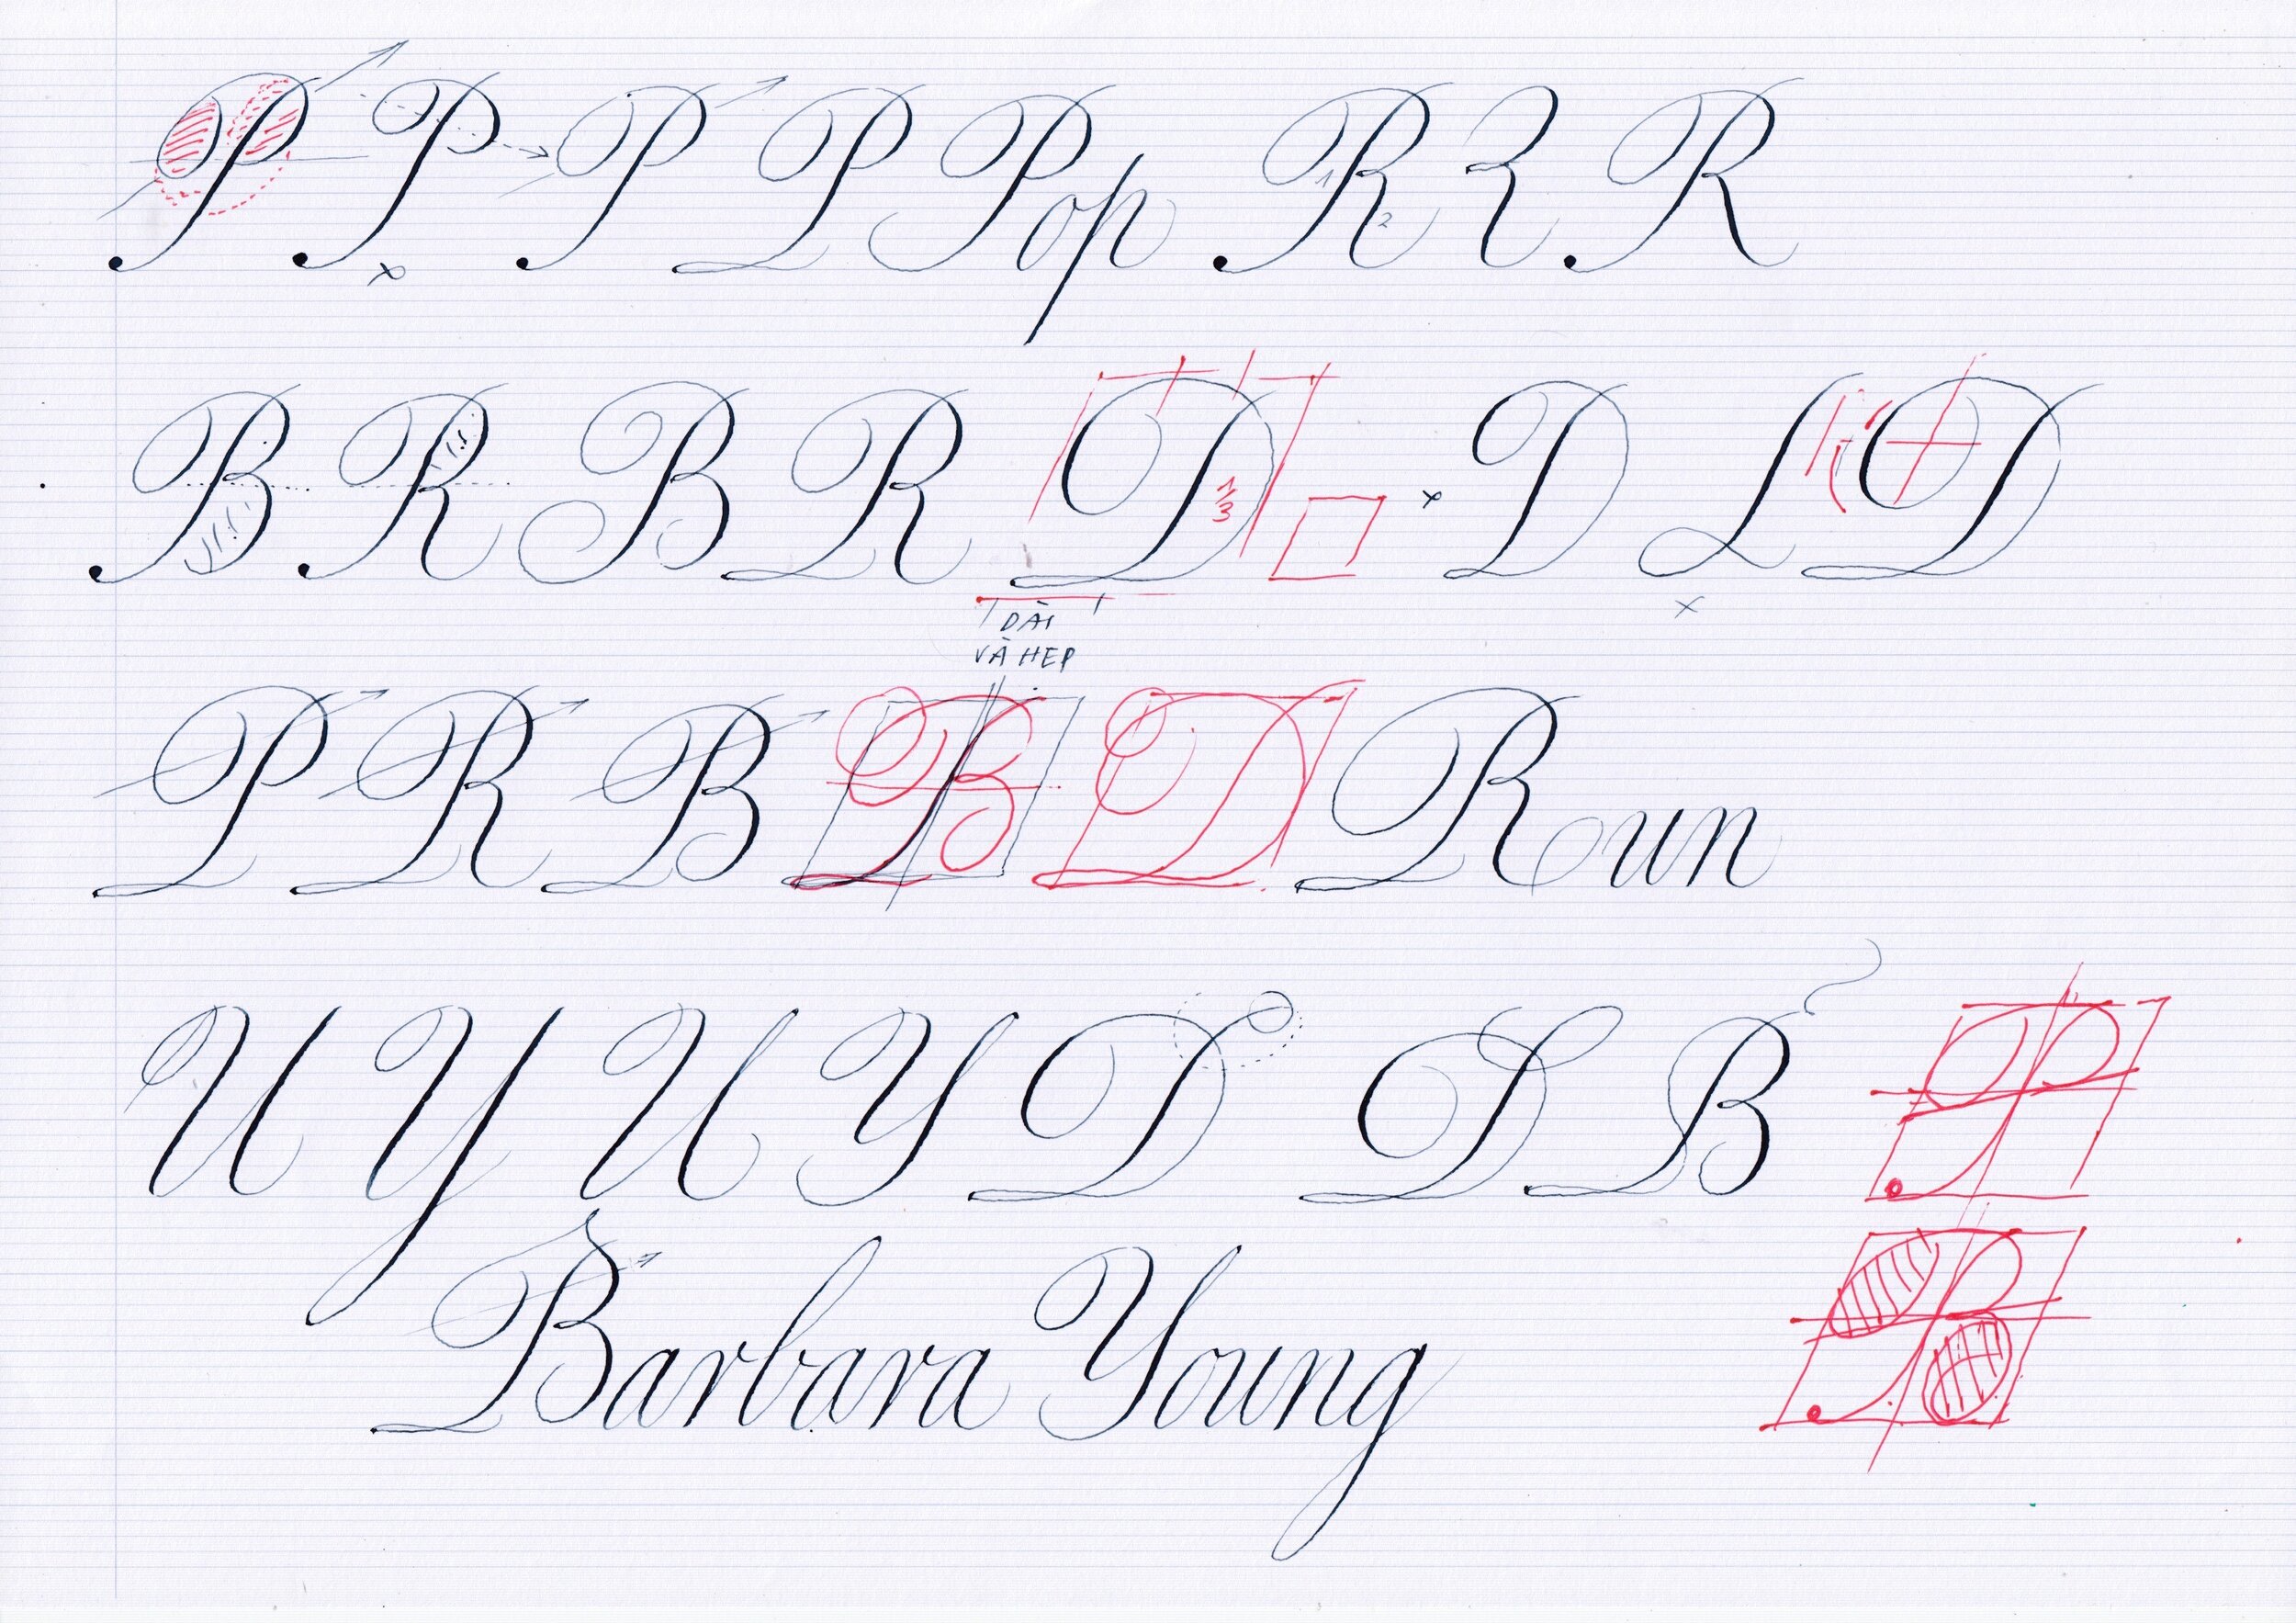 P P P P Pop R R
B R B R D 1/3 D L D
DÀI
VÀ HẸP
P R B B D Run
U Y U Y D D B P
Barbara Young R